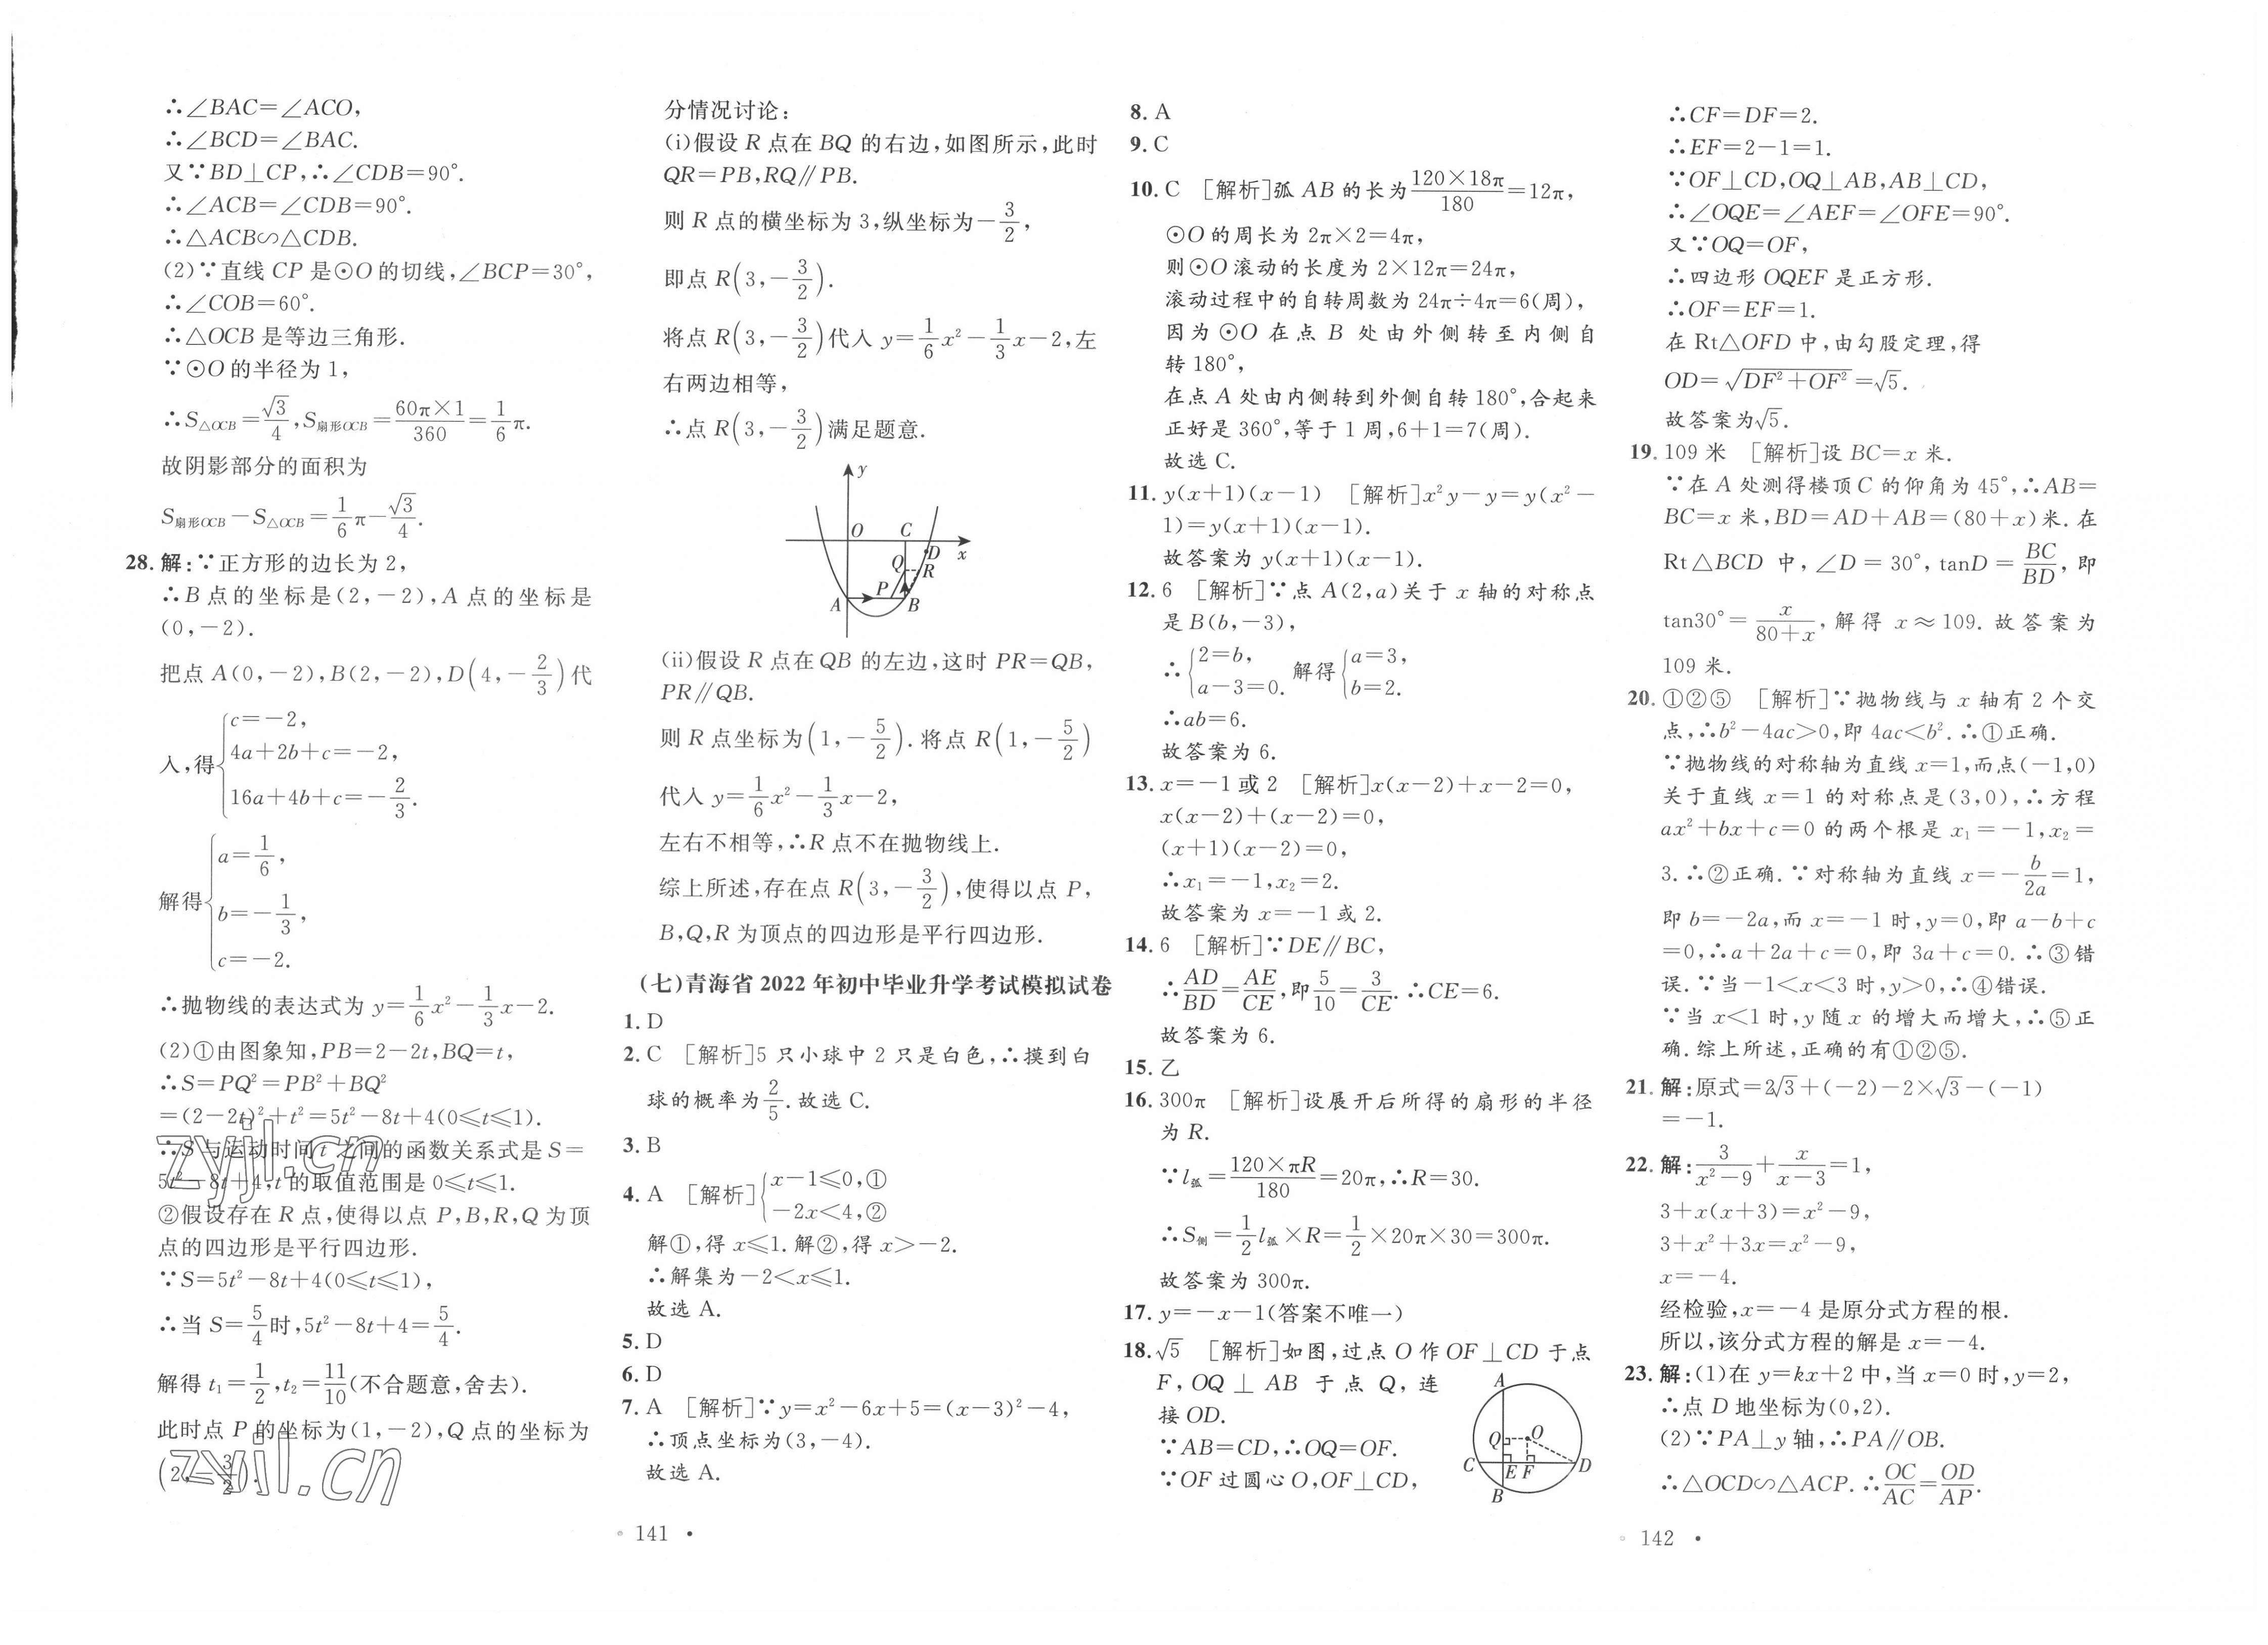 ∴∠BAC=∠ACO,
∴∠BCD=∠BAC.
又∵BD⊥CP,∴∠CDB=90°.
∴∠ACB=∠CDB=90°.
∴△ACB∽△CDB.
(2)∵直线 CP 是⊙O 的切线,∠BCP=30°,
∴∠COB=60°.
∴△OCB 是等边三角形.
∵⊙O 的半径为 1,
∴S△OCB=√3/4,S扇形OCB=60π×1/360=1/6π.
故阴影部分的面积为
S扇形OCB−S△OCB=1/6π−√3/4.
28. 解:∵正方形的边长为 2,
∴B 点的坐标是(2,−2),A 点的坐标是
(0,−2).
把点 A(0,−2),B(2,−2),D(4,−2/3)代
入,得{c=−2,
4a+2b+c=−2,
16a+4b+c=−2/3.
解得{a=1/6,
b=−1/3,
c=−2.
∴抛物线的表达式为 y=1/6x²−1/3x−2.
(2)①由图象知,PB=2−2t,BQ=t,
∴S=PQ²=PB²+BQ²
=(2−2t)²+t²=5t²−8t+4(0≤t≤1).
∴S 与运动时间 t 之间的函数关系式是 S=
5t²−8t+4,t 的取值范围是 0≤t≤1.
②假设存在 R 点,使得以点 P,B,R,Q 为顶
点的四边形是平行四边形.
∵S=5t²−8t+4(0≤t≤1),
∴当 S=5/4时,5t²−8t+4=5/4.
解得 t₁=1/2,t₂=11/10(不合题意,舍去).
此时点 P 的坐标为(1,−2),Q 点的坐标为
(2,−3/2).
zyjl.cn
zyjl.cn
分情况讨论:
(i)假设 R 点在 BQ 的右边,如图所示,此时
QR=PB,RQ∥PB.
则 R 点的横坐标为 3,纵坐标为−3/2,
即点 R(3,−3/2).
将点 R(3,−3/2)代入 y=1/6x²−1/3x−2,左
右两边相等,
∴点 R(3,−3/2)满足题意.
y
O C
D x
Q
R
P
A B
(ii)假设 R 点在 QB 的左边,这时 PR=QB,
PR∥QB.
则 R 点坐标为(1,−5/2).将点 R(1,−5/2)
代入 y=1/6x²−1/3x−2,
左右不相等,∴R 点不在抛物线上.
综上所述,存在点 R(3,−3/2),使得以点 P,
B,Q,R 为顶点的四边形是平行四边形.
(七)青海省 2022 年初中毕业升学考试模拟试卷
1. D
2. C [解析]5 只小球中 2 只是白色,∴摸到白
球的概率为2/5.故选 C.
3. B
4. A [解析]{x−1≤0,①
−2x<4,②
解①,得 x≤1.解②,得 x>−2.
∴解集为−2<x≤1.
故选 A.
5. D
6. D
7. A [解析]∵y=x²−6x+5=(x−3)²−4,
∴顶点坐标为(3,−4).
故选 A.
141
8. A
9. C
10. C [解析]弧 AB 的长为120×18π/180=12π,
⊙O 的周长为 2π×2=4π,
则⊙O 滚动的长度为 2×12π=24π,
滚动过程中的自转周数为 24π÷4π=6(周),
因为 ⊙O 在点 B 处由外侧转至内侧自
转 180°,
在点 A 处由内侧转到外侧自转 180°,合起来
正好是 360°,等于 1 周,6+1=7(周).
故选 C.
11. y(x+1)(x−1) [解析]x²y−y=y(x²−
1)=y(x+1)(x−1).
故答案为 y(x+1)(x−1).
12. 6 [解析]∵点 A(2,a)关于 x 轴的对称点
是 B(b,−3),
∴{2=b,
a−3=0. 解得{a=3,
b=2.
∴ab=6.
故答案为 6.
13. x=−1 或 2 [解析]x(x−2)+x−2=0,
x(x−2)+(x−2)=0,
(x+1)(x−2)=0,
∴x₁=−1,x₂=2.
故答案为 x=−1 或 2.
14. 6 [解析]∵DE∥BC,
∴AD/BD=AE/CE,即5/10=3/CE.∴CE=6.
故答案为 6.
15. 乙
16. 300π [解析]设展开后所得的扇形的半径
为 R.
∵l弧=120×πR/180=20π,∴R=30.
∴S侧=1/2l弧×R=1/2×20π×30=300π.
故答案为 300π.
17. y=−x−1(答案不唯一)
18. √5 [解析]如图,过点 O 作 OF⊥CD 于点
F,OQ ⊥ AB 于点 Q,连
接 OD.
∵AB=CD,∴OQ=OF.
∵OF 过圆心 O,OF⊥CD,
A
Q O
C E F D
B
∴CF=DF=2.
∴EF=2−1=1.
∵OF⊥CD,OQ⊥AB,AB⊥CD,
∴∠OQE=∠AEF=∠OFE=90°.
又∵OQ=OF,
∴四边形 OQEF 是正方形.
∴OF=EF=1.
在 Rt△OFD 中,由勾股定理,得
OD=√(DF²+OF²)=√5.
故答案为√5.
19. 109 米 [解析]设 BC=x 米.
∵在 A 处测得楼顶 C 的仰角为 45°,∴AB=
BC=x 米,BD=AD+AB=(80+x)米.在
Rt△BCD 中,∠D=30°,tanD=BC/BD,即
tan30°=x/80+x,解得 x≈109.故答案为
109 米.
20. ①②⑤ [解析]∵抛物线与 x 轴有 2 个交
点,∴b²−4ac>0,即 4ac<b².∴①正确.
∵抛物线的对称轴为直线 x=1,而点(−1,0)
关于直线 x=1 的对称点是(3,0),∴方程
ax²+bx+c=0 的两个根是 x₁=−1,x₂=
3.∴②正确.∵对称轴为直线 x=−b/2a=1,
即 b=−2a,而 x=−1 时,y=0,即 a−b+c
=0,∴a+2a+c=0,即 3a+c=0.∴③错
误.∵当−1<x<3 时,y>0,∴④错误.
∵当 x<1 时,y 随 x 的增大而增大,∴⑤正
确.综上所述,正确的有①②⑤.
21. 解:原式=2√3+(−2)−2×√3−(−1)
=−1.
22. 解:3/x²−9+x/x−3=1,
3+x(x+3)=x²−9,
3+x²+3x=x²−9,
x=−4.
经检验,x=−4 是原分式方程的根.
所以,该分式方程的解是 x=−4.
23. 解:(1)在 y=kx+2 中,当 x=0 时,y=2,
∴点 D 地坐标为(0,2).
(2)∵PA⊥y 轴,∴PA∥OB.
∴△OCD∽△ACP.∴OC/AC=OD/AP.
142